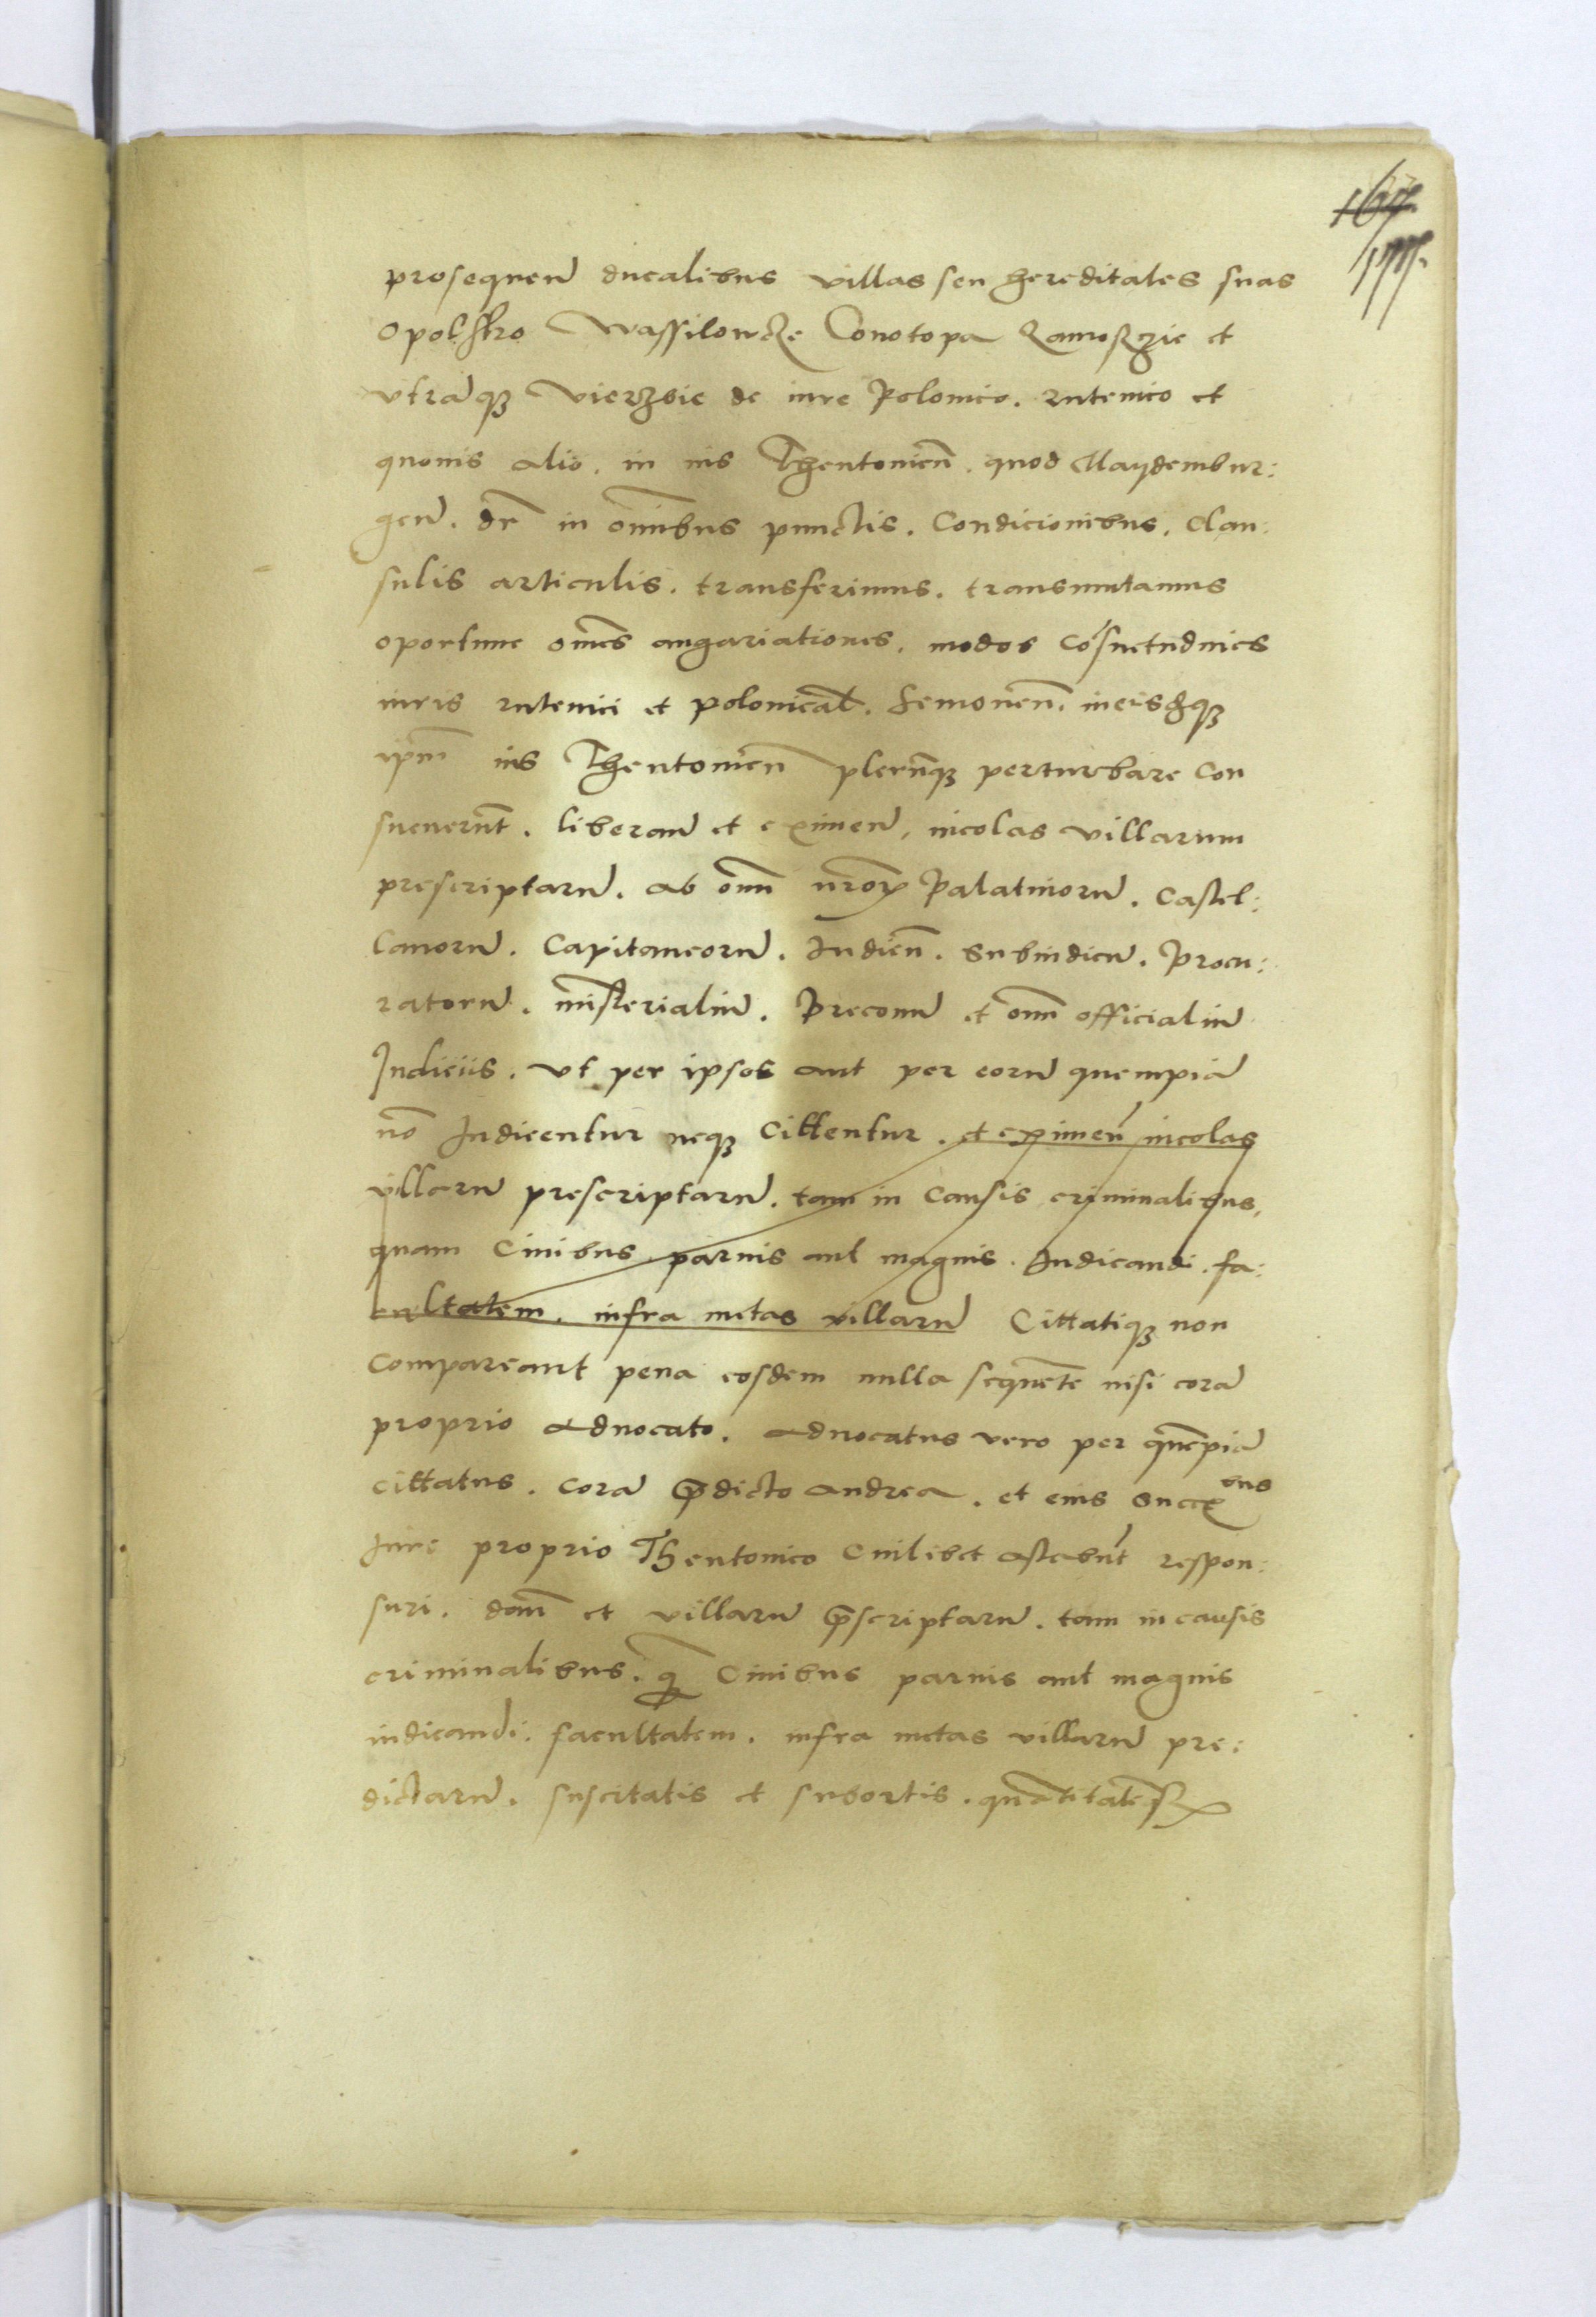 167
177.
prosequen̄ ducalibus villas seu hereditates suas
Opolsko Wassilowcze Conotopa Zamosczie et
vtrāq₃ vierzbie de iure Polonico. rutenico et
quouis alio. in ius Theutonicn̄. quod Maydembur:
gen̄. dr̄ in om̄ibus punctis. Condicionibus. Clau:
sulis articulis. transferimus. transmutamus
oportune om̄es angariationes. modos Cōsuetudines
iuris rutenici et polonical. Remouen̄. ineisdēq₃
ipm̄ ius Theutonicn̄ plerūq₃ perturbare Con
sueuerūt. liberan̄ et eximen̄. incolas villarum
prescriptarū. Ab om̄n nr̄oꝝ Palatinorū. Castel:
lanorū. Capitaneorū. Iudicū. Subiudicū. Procu:
ratorū. mīsterialiū. Preconū et om̄n officialiū
Iudiciis. Vt per ipsos aut per eorū quempiā
nō Iudicentur neq₃ Cittentur. et eximen̄ incolas
villarū prescriptarū. tam in Causis criminalibus,
quam Ciuibus paruis aut magnis. Iudicandi. fa:
cultatem. infra metas villarū Cittatiq₃ non
Compareant pena eosdem nulla sequēte nisi corā
proprio Aduocato. Aduocatus vero per quēpiā
Cittatus. Corā p̄dicto Andrea. et eius Succꝝbus
Iure proprio Theutonico Cuilibet astabūt respon:
suri. dam̄ et villarū p̄scriptarū. tam in causis
criminalibus. q̄ Ciuibus paruis aut magnis
iudicandi. facultatem. infra metas villarū pre:
dictarū. suscitatis et subortis.